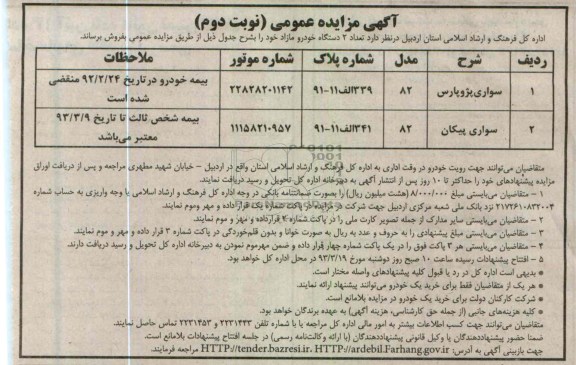 آگهی مزایده عمومی (نوبت دوم)
اداره کل فرهنگ و ارشاد اسلامی استان اردبیل درنظر دارد تعداد ۲ دستگاه خودرو مازاد خود را بشرح جدول ذیل از طریق مزایده عمومی بفروش برساند.
ردیف شرح مدل شماره پلاک شماره موتور ملاحظات
۱ سواری پژوپارس ۸۲ ۳۳۹الف۱۱-۹۱ ۲۲۸۲۸۲۰۱۱۴۲ بیمه خودرو در تاریخ ۹۲/۲/۲۴ منقضی
شده است
۲ سواری پیکان ۸۲ ۳۴۱الف۱۱-۹۱ ۱۱۱۵۸۲۱۰۹۵۷ بیمه شخص ثالث تا تاریخ ۹۳/۳/۹
معتبر می‌باشد
متقاضیان می‌توانند جهت رویت خودرو در وقت اداری به اداره کل فرهنگ و ارشاد اسلامی استان واقع در اردبیل - خیابان شهید مطهری مراجعه و پس از دریافت اوراق
مزایده پیشنهادهای خود را حداکثر تا ۱۰ روز پس از انتشار آگهی به دبیرخانه اداره کل تحویل و رسید دریافت نمایند.
۱ - متقاضیان می‌بایستی مبلغ ۸/۰۰۰/۰۰۰ (هشت میلیون ریال) را بصورت ضمانتنامه بانکی در وجه اداره کل فرهنگ و ارشاد اسلامی یا وجه واریزی به حساب شماره
۲۱۷۲۶۱۰۸۳۲۰۰۴ نزد بانک ملی شعبه مرکزی اردبیل جهت شرکت در مزایده در پاکت شماره یک قرار داده و مهر و موم نمایند.
۲ - متقاضیان می‌بایستی سایر مدارک از جمله تصویر کارت ملی را در پاکت شماره ۲ قرارداده و مهر و موم نمایند.
۳ - متقاضیان می‌بایستی مبلغ پیشنهادی را به حروف و عدد به ریال به صورت خوانا و بدون قلم‌خوردگی در پاکت شماره ۳ قرار داده و مهر و موم نمایند.
۴ - متقاضیان می‌بایستی هر ۳ پاکت فوق را در یک پاکت شماره چهار قرار داده و ضمن مهرموم نمودن به دبیرخانه اداره کل تحویل و رسید دریافت دارند.
۵ - افتتاح پیشنهادات رسیده ساعت ۱۰ صبح روز دوشنبه مورخ ۹۳/۳/۱۹ در محل اداره کل خواهد بود.
* بدیهی است اداره کل در رد یا قبول کلیه پیشنهادهای واصله مختار است.
* هر یک از متقاضیان فقط برای خرید یک خودرو می‌توانند پیشنهاد ارائه نمایند.
* شرکت کارکنان دولت برای خرید یک خودرو در مزایده بلامانع است.
* کلیه هزینه‌های جانبی (از جمله حق کارشناسی، هزینه آگهی) به عهده برندگان خواهد بود.
متقاضیان می‌توانند جهت کسب اطلاعات بیشتر به امور مالی اداره کل مراجعه یا با شماره تلفن ۲۲۳۱۴۳۳ و ۲۲۳۱۴۵۳ تماس حاصل نمایند.
ضمنا حضور پیشنهاددهندگان یا وکیل قانونی پیشنهاددهندگان (با ارائه وکالتنامه رسمی) در جلسه افتتاح پیشنهادات بلامانع است.
جهت بازبینی آگهی به آدرس: HTTP//tender.bazresi.ir، HTTP//ardebil.Farhang.gov.ir مراجعه فرمایند.